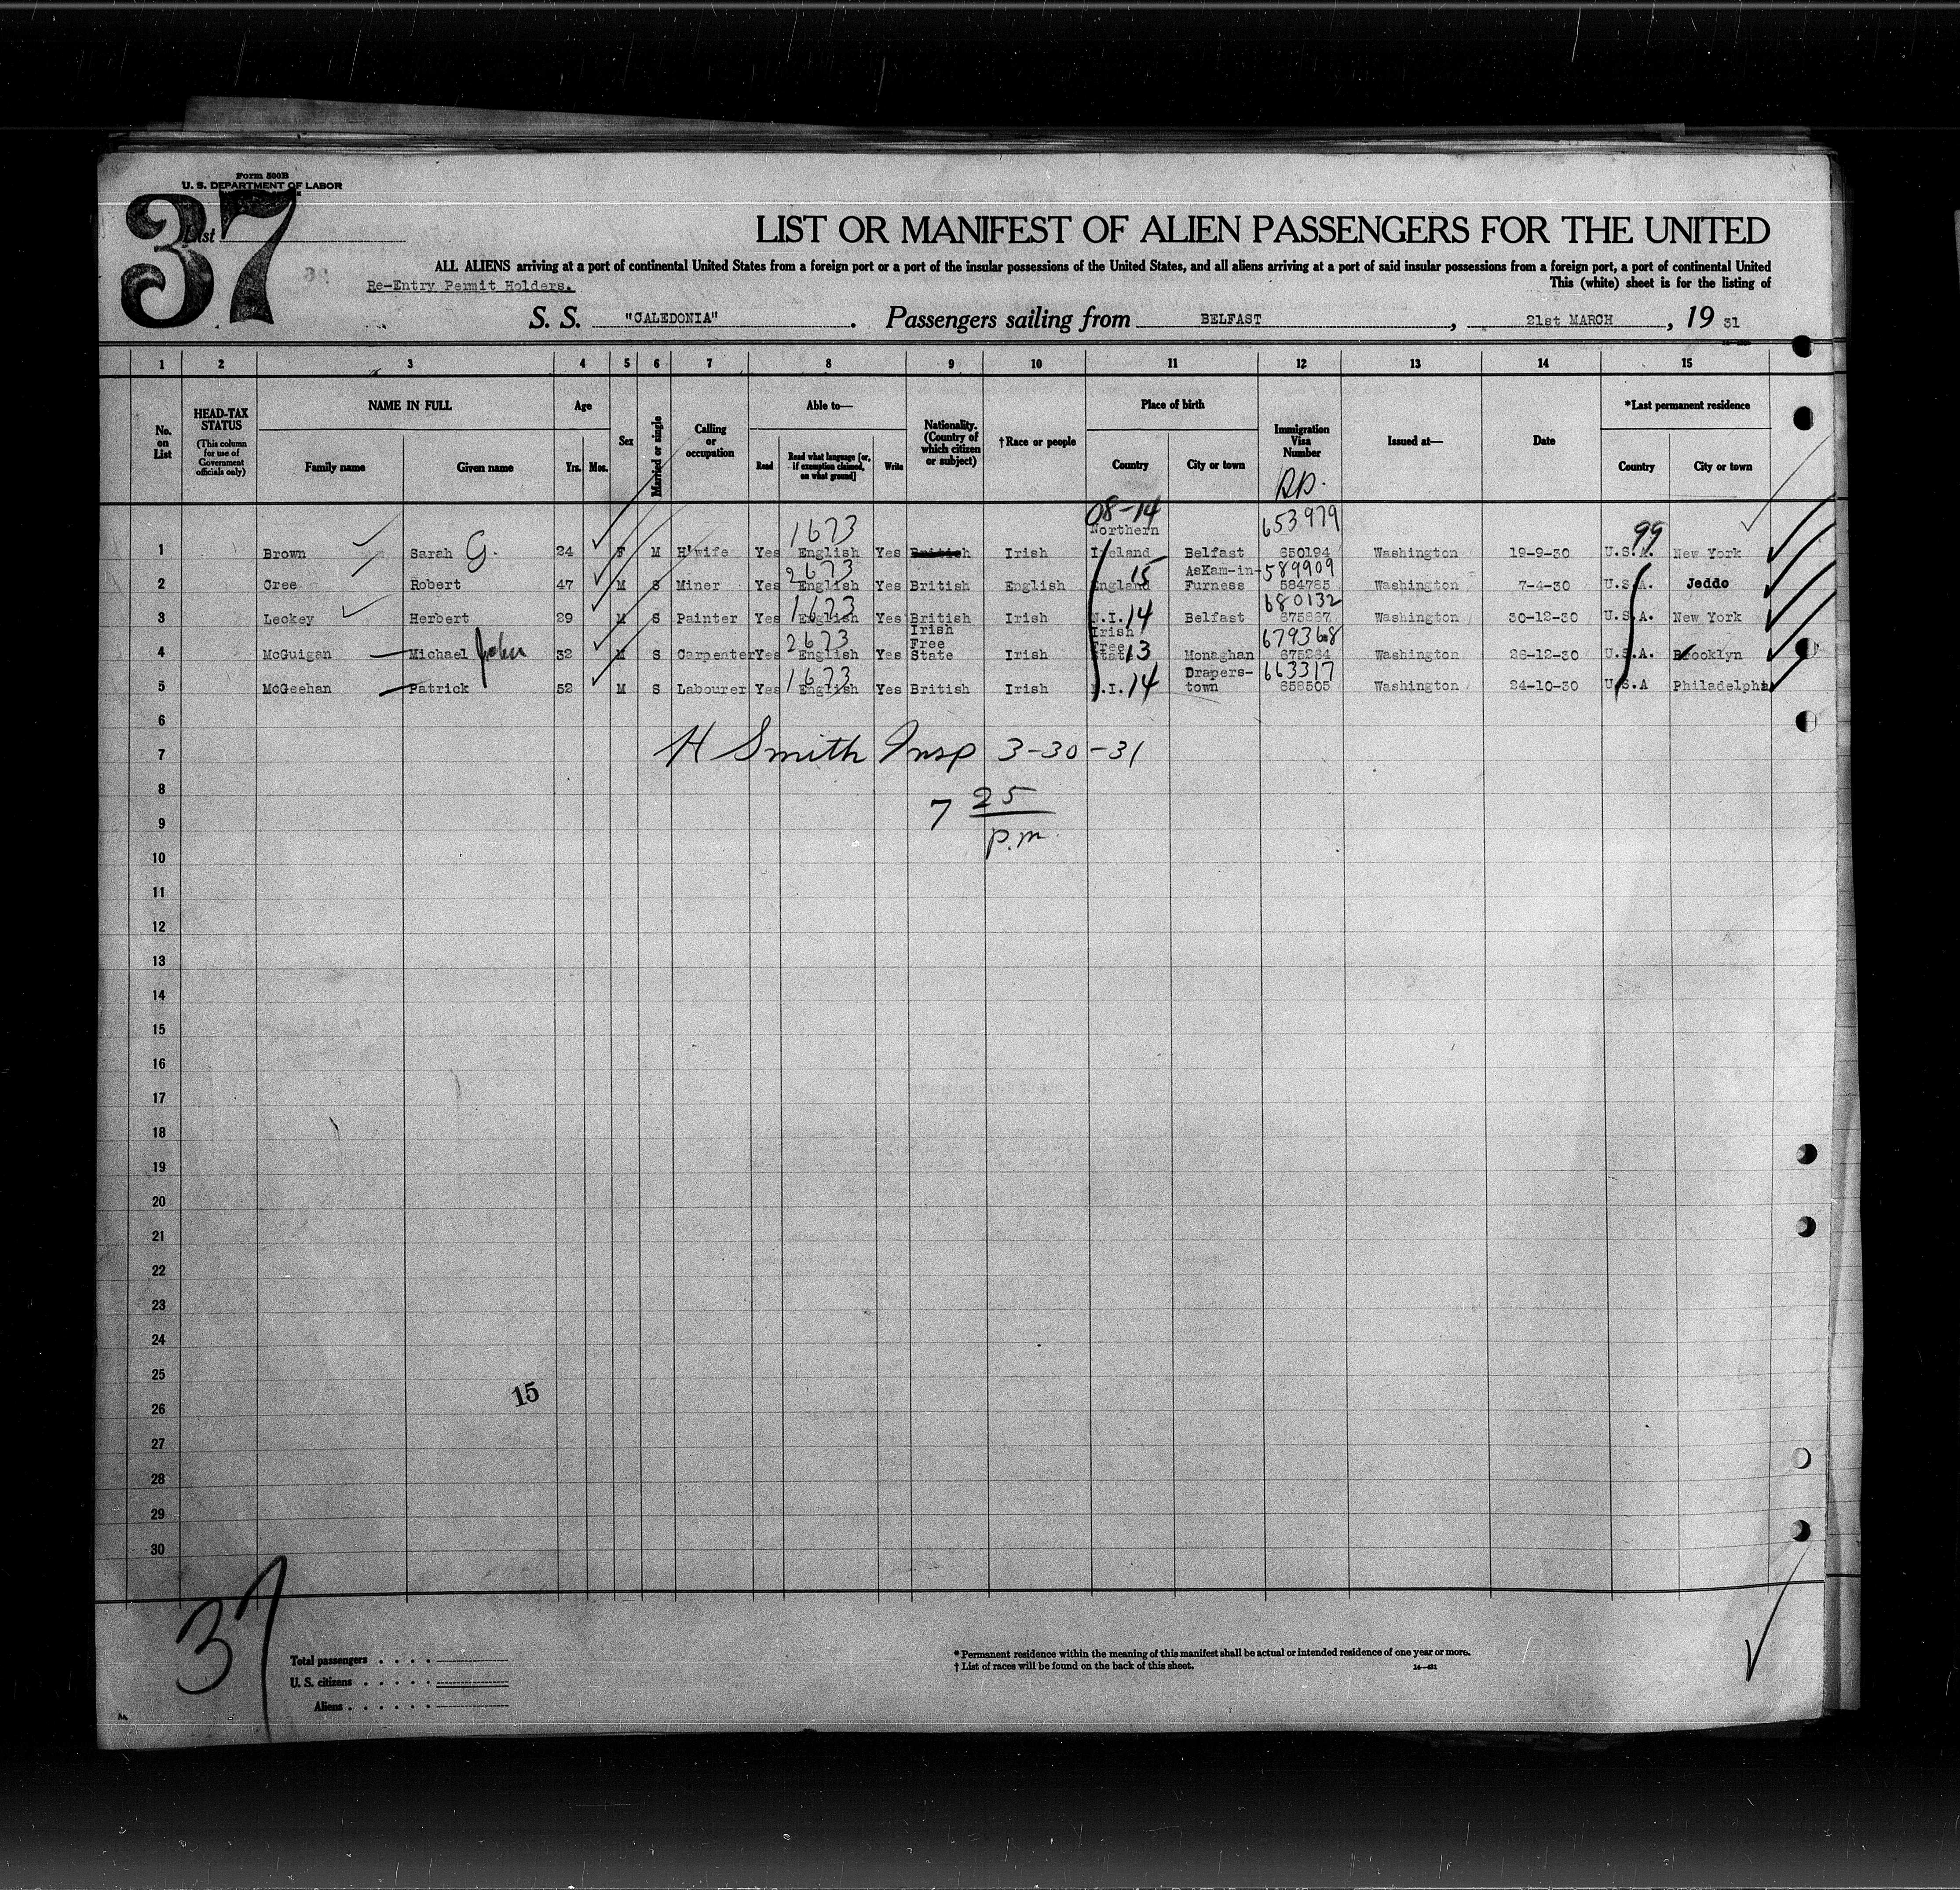 Form 500B
U. S. DEPARTMENT OF LABOR
37
List
LIST OR MANIFEST OF ALIEN PASSENGERS FOR THE UNITED
ALL ALIENS arriving at a port of continental United States from a foreign port or a port of the insular possessions of the United States, and all aliens arriving at a port of said insular possessions from a foreign port, a port of continental United
Re-Entry Permit Holders. This (white) sheet is for the listing of
S. S. "CALEDONIA". Passengers sailing from BELFAST, 21st MARCH, 19 31
1 2 3 4 5 6 7 8 9 10 11 12 13 14 15
No. on List
HEAD-TAX STATUS (This column for use of Government officials only)
NAME IN FULL
Family name Given name
Age
Yrs. Mos.
Sex
Married or single
Calling or occupation
Able to—
Read Read what language [or, if exemption claimed, on what ground] Write
Nationality. (Country of which citizen or subject)
†Race or people
Place of birth
Country City or town
Immigration Visa Number
Issued at—
Date
*Last permanent residence
Country City or town
08-14
1673 Northern 653979 99
1 Brown Sarah G. 24 F M H'wife Yes English Yes British Irish Ireland Belfast 650194 Washington 19-9-30 U.S.A. New York
2673 15 AsKam-in- 589909
2 Cree Robert 47 M S Miner Yes English Yes British English England Furness 584785 Washington 7-4-30 U.S.A. Jeddo
1673 680132
3 Leckey Herbert 29 M S Painter Yes English Yes British Irish N.I. 14 Belfast 675887 Washington 30-12-30 U.S.A. New York
2673 Irish Free Irish Free 679368
4 McGuigan Michael John 32 M S Carpenter Yes English Yes State Irish State 13 Monaghan 675264 Washington 26-12-30 U.S.A. Brooklyn
1673 Drapers- 663317
5 McGeehan Patrick 52 M S Labourer Yes English Yes British Irish N.I. 14 town 658505 Washington 24-10-30 U.S.A Philadelphia
6
7 H Smith Insp 3-30-31
8
7 25
9
p.m.
10
11
12
13
14
15
16
17
18
19
20
21
22
23
24
25
15
26
27
28
29
30
37
Total passengers
U. S. citizens
Aliens
* Permanent residence within the meaning of this manifest shall be actual or intended residence of one year or more.
† List of races will be found on the back of this sheet.